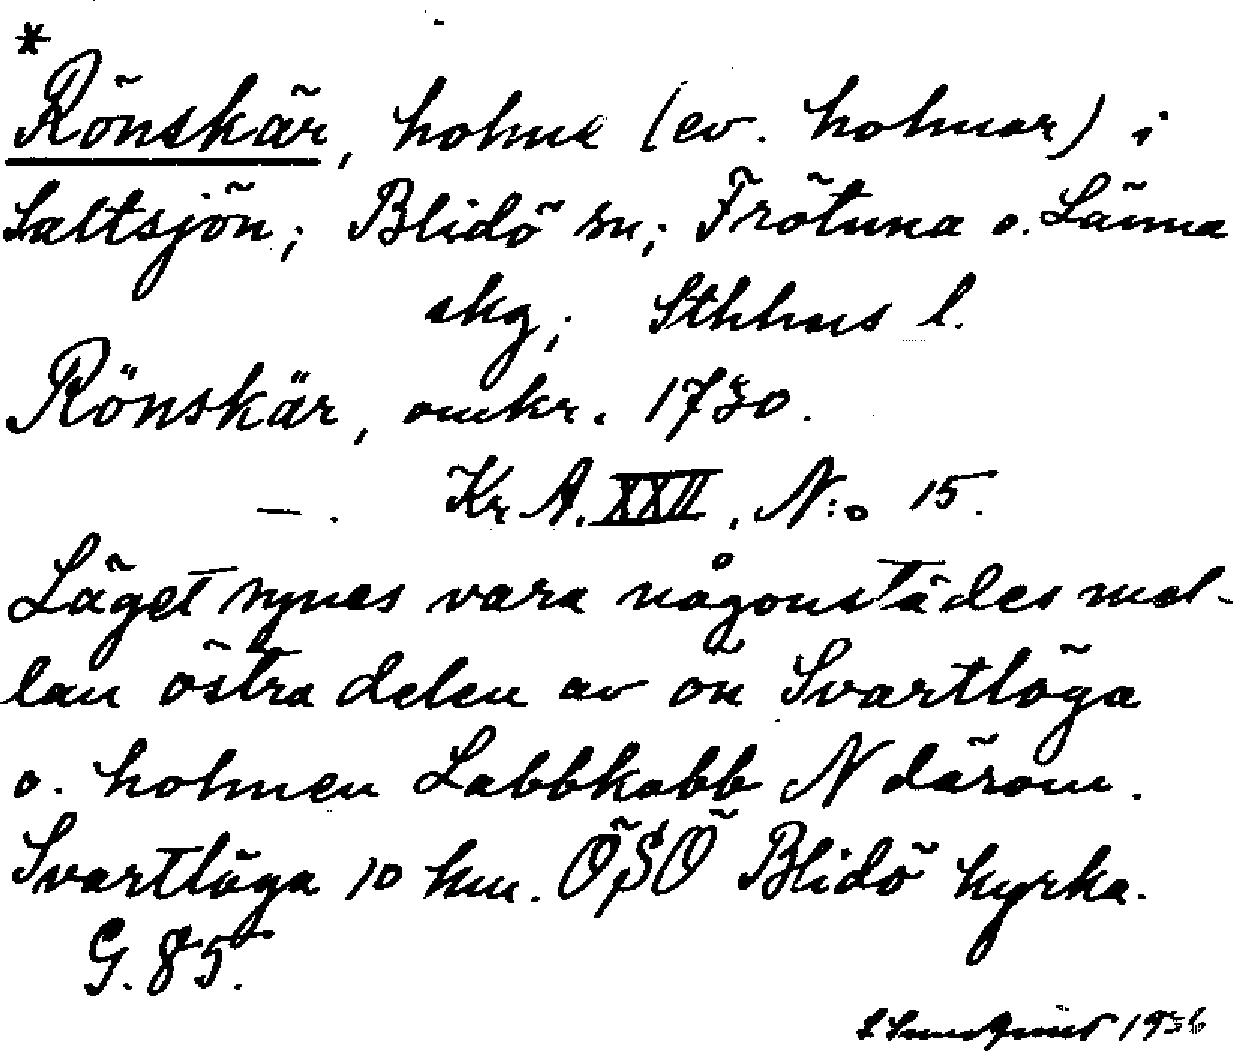 *
Rönskär, holme (ev. holmar) i
Saltsjön; Blidö sn; Frötuna o. Länna
skg; Sthlms l.
Rönskär, omkr. 1730.
—. Kr. A. XXII, N:o 15.
Läget synes vara någonstädes mel-
lan östra delen av ön Svartlöga
o. holmen Labbkobb N därom.
Svartlöga 10 km. ÖSÖ Blidö kyrka.
G. 85.
1936